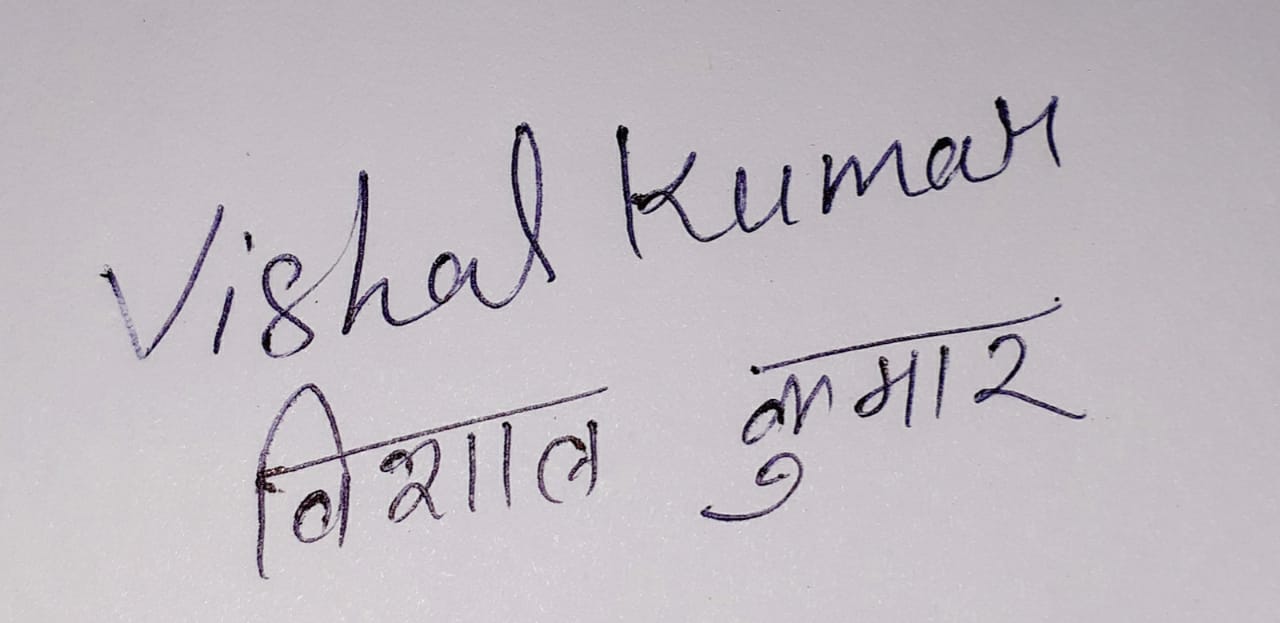 Vishal Kumar
विशाल कुमार